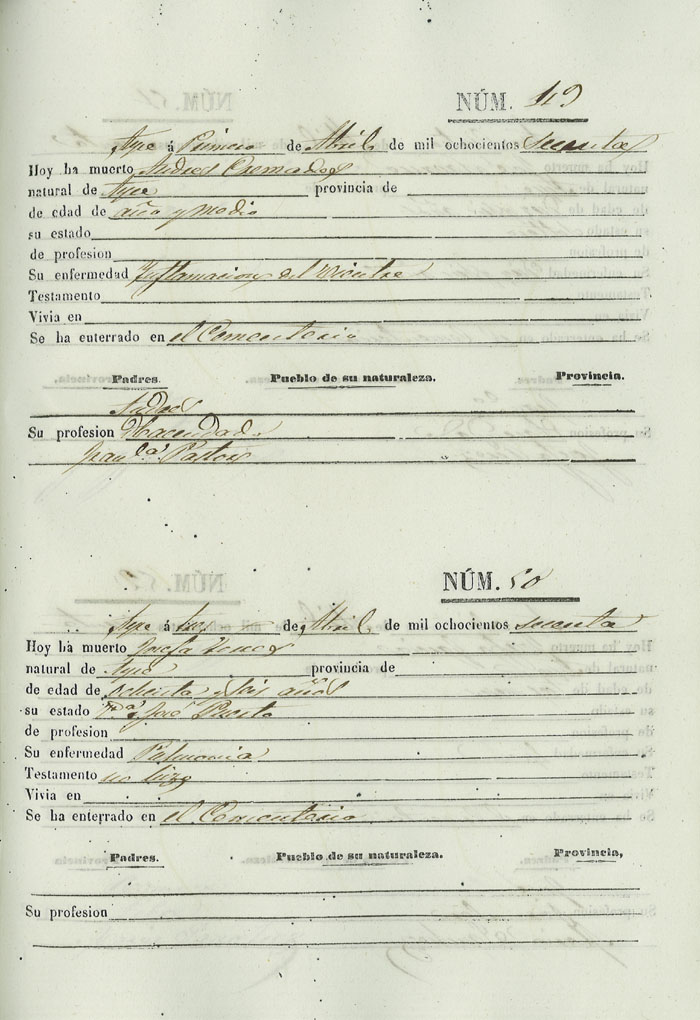 NÚM. 49
Aspe á Primero de Abril de mil ochocientos sesenta
Hoy ha muerto Andres Cremades
natural de Aspe provincia de
de edad de año y medio
su estado
de profesion
Su enfermedad Inflamacion del Vientre
Testamento
Vivia en
Se ha enterrado en el Cementerio
Padres. Pueblo de su naturaleza. Provincia.
Andres
Su profesion Hacendado
Fran.ca Pastor
NÚM. 50
Aspe á de Abril de mil ochocientos sesenta
Hoy ha muerto Josefa
natural de Aspe provincia de
de edad de ochenta y años
su estado V.da José
de profesion
Su enfermedad Pulmonia
Testamento no hizo
Vivia en
Se ha enterrado en el Cementerio
Padres. Pueblo de su naturaleza. Provincia,
Su profesion